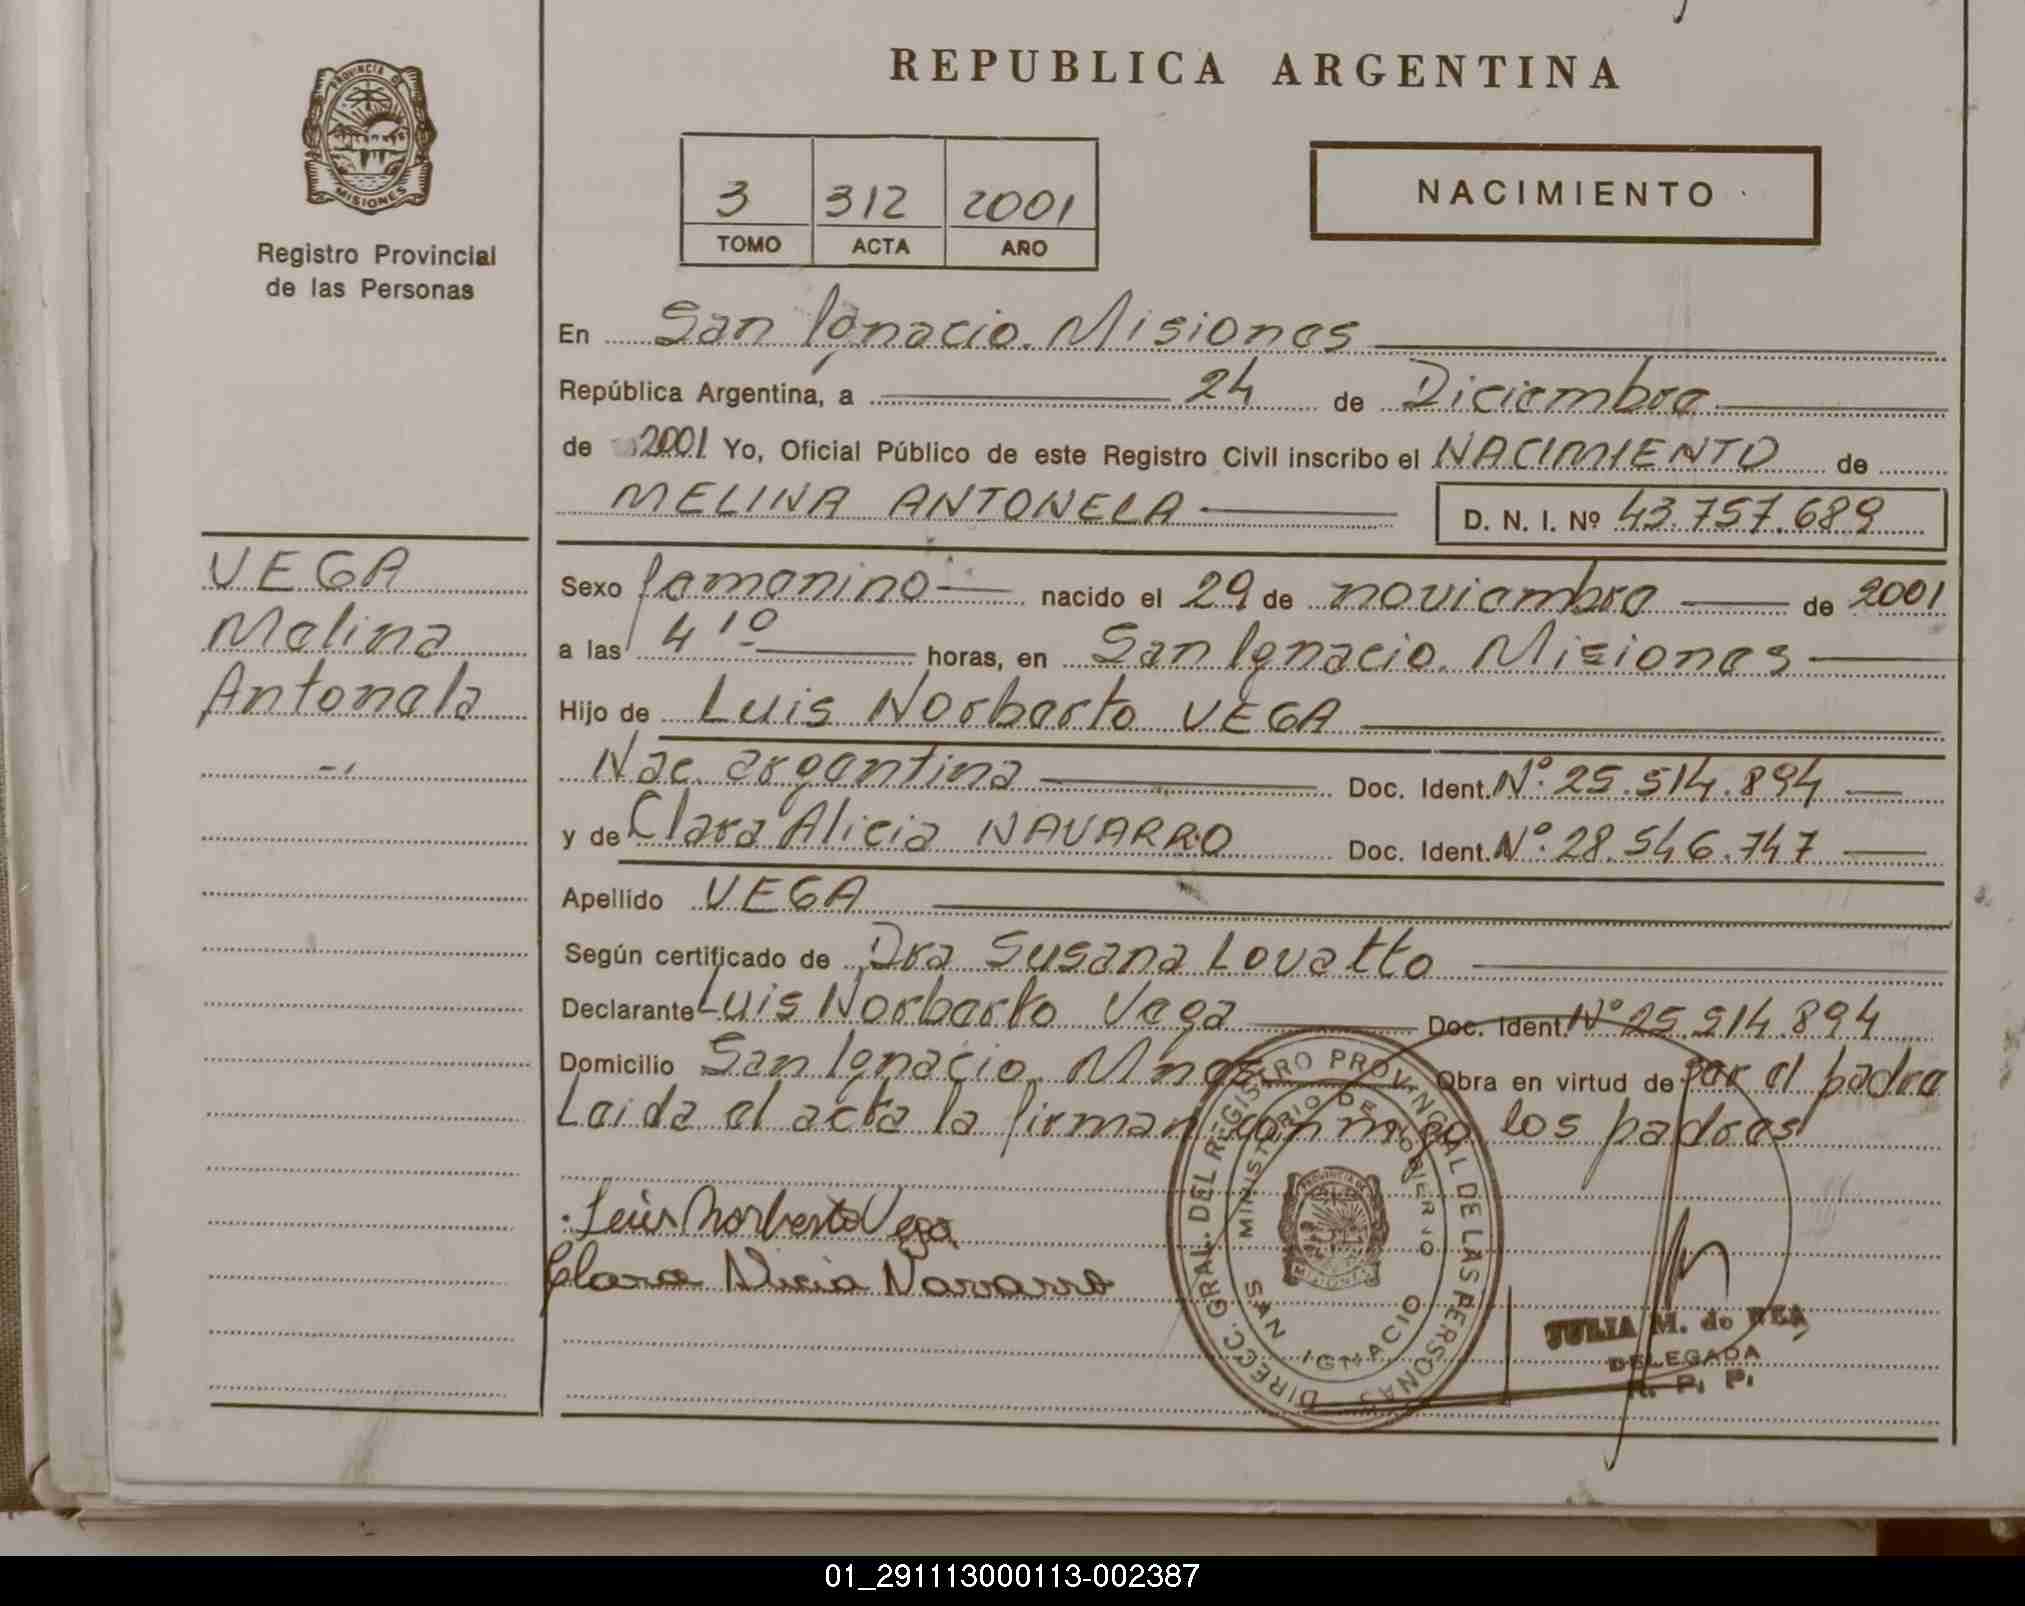 REPUBLICA ARGENTINA
PROVINCIA DE
MISIONES
Registro Provincial
de las Personas
3 312 2001
TOMO ACTA AÑO
NACIMIENTO
En San Ignacio. Misiones
República Argentina, a 24 de Diciembre
de 2001 Yo, Oficial Público de este Registro Civil inscribo el NACIMIENTO de
MELINA ANTONELA D. N. I. Nº 43.757.689
VEGA
Melina
Antonela
Sexo femenino nacido el 29 de noviembre de 2001
a las 4 10 horas, en San Ignacio. Misiones
Hijo de Luis Norberto VEGA
Nac. argentina Doc. Ident. Nº. 25.514.894
y de Clara Alicia NAVARRO Doc. Ident. Nº. 28.546.747
Apellido VEGA
Según certificado de Dra Susana Lovatto
Declarante Luis Norberto Vega Doc. Ident. Nº 25.514.894
Domicilio San Ignacio. Mnes Obra en virtud de por el padre
Leida el acta la firman conmigo los padres
Luis Norberto Vega
Clara Alicia Navarro
DIRECC. GRAL. DEL REGISTRO PROVINCIAL DE LAS PERSONAS
MINISTERIO DE GOBIERNO
PROVINCIA DE
MISIONES
SAN IGNACIO
JULIA M. de REA
DELEGADA
R. P. P.
01_291113000113-002387